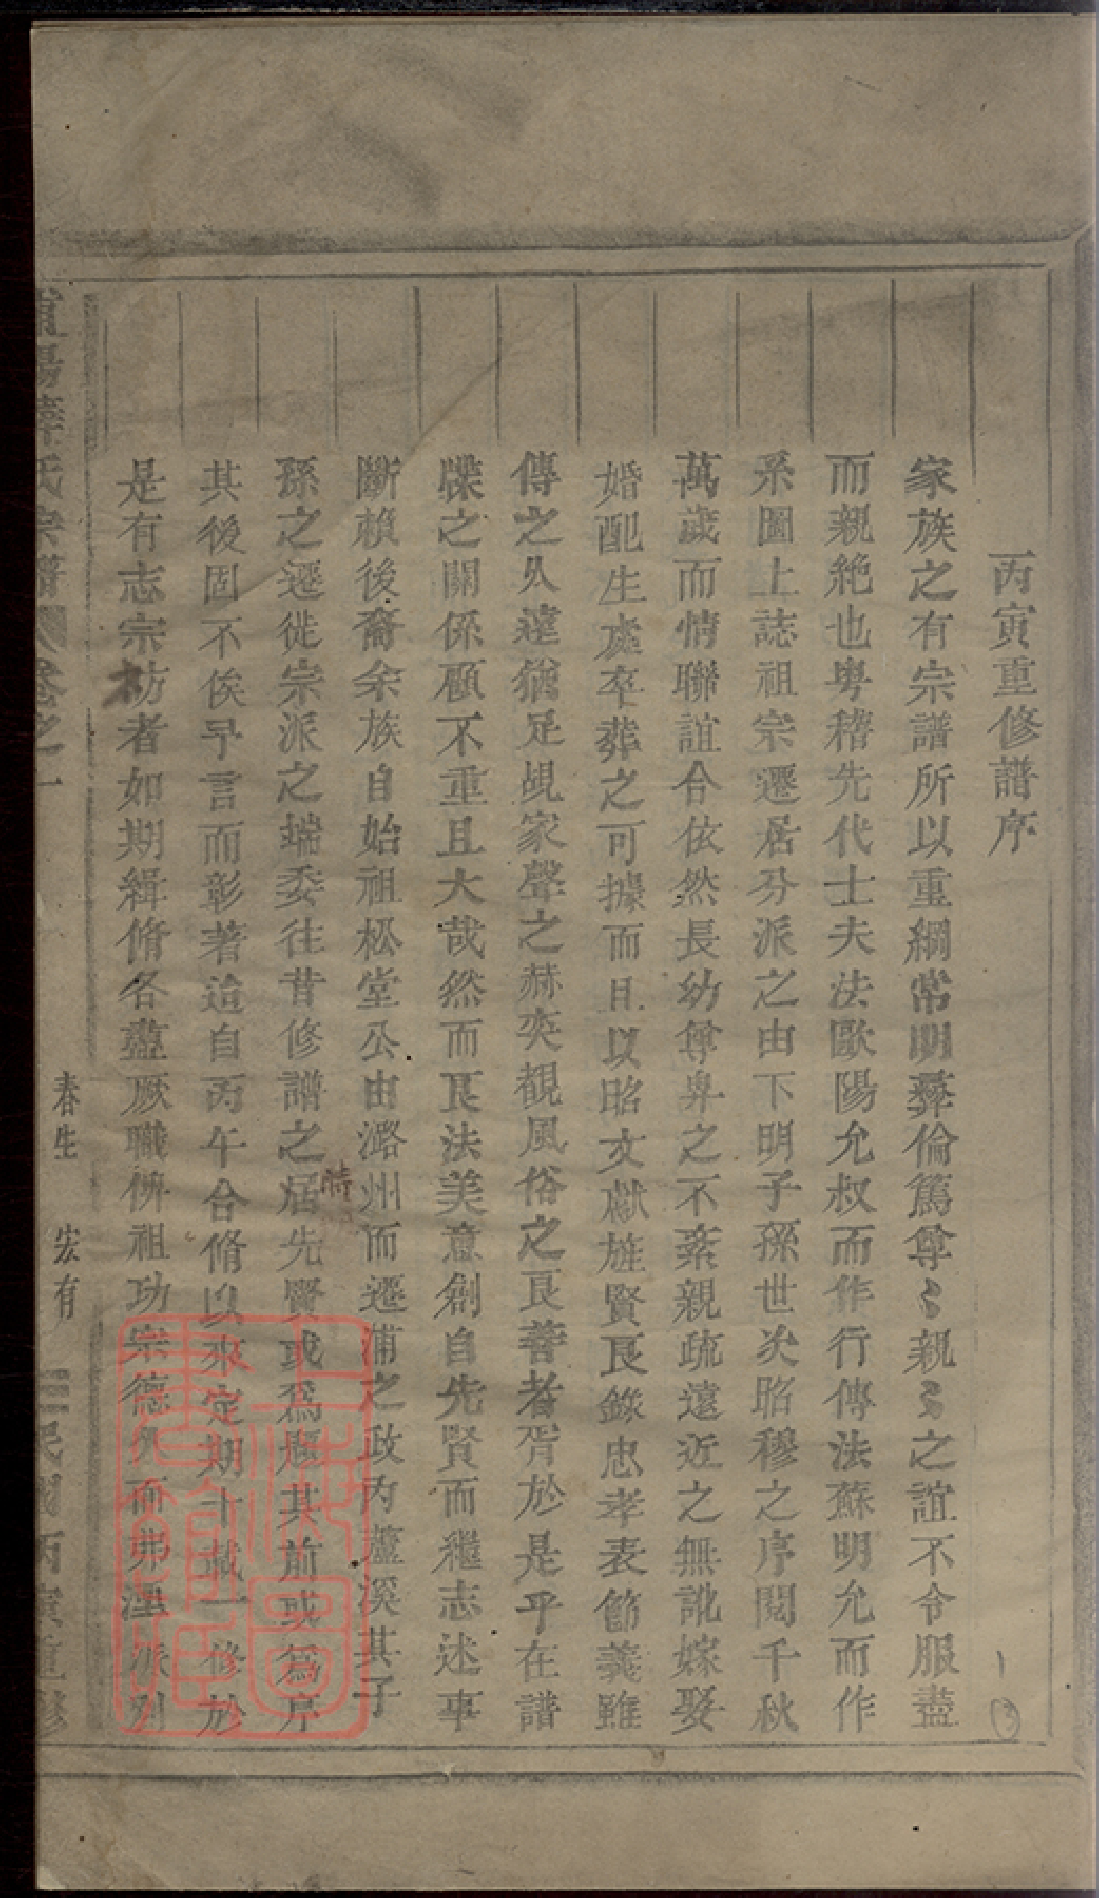 丙寅重修譜序
家族之有宗譜所以重綱常明彝倫篤尊〻親〻之誼不令服盡
而親絶也粤稽先代士夫法歐陽允叔而作行傳法蘇明允而作
系圖上誌祖宗遷居分派之由下明子孫世次昭穆之序閱千秋
萬歲而情聯誼合依然長幼尊卑之不紊親疏遠近之無訛嫁娶
婚配生處卒葬之可據而且以昭文献旌賢良錄忠孝表節義雖
傳之久遠猶足覘家聲之赫奕觀風俗之良善者胥於是乎在譜
牒之關係顧不重且大哉然而良法美意創自先賢而繼志述事
斷賴後裔余族自始祖松堂公由潞州而遷浦之政内蘆溪其子
孫之遷徙宗派之端委往昔修譜之居先賢或爲題其前或爲序
時
其後固不俟予言而彰著迨自丙午合脩以來定期十載一修於
是有志宗祊者如期緝脩各盡厥職俾祖功宗德久而弗湮派別
氏宗譜 卷之一 春生 宏有 民國丙寅重修
上海圖書館藏